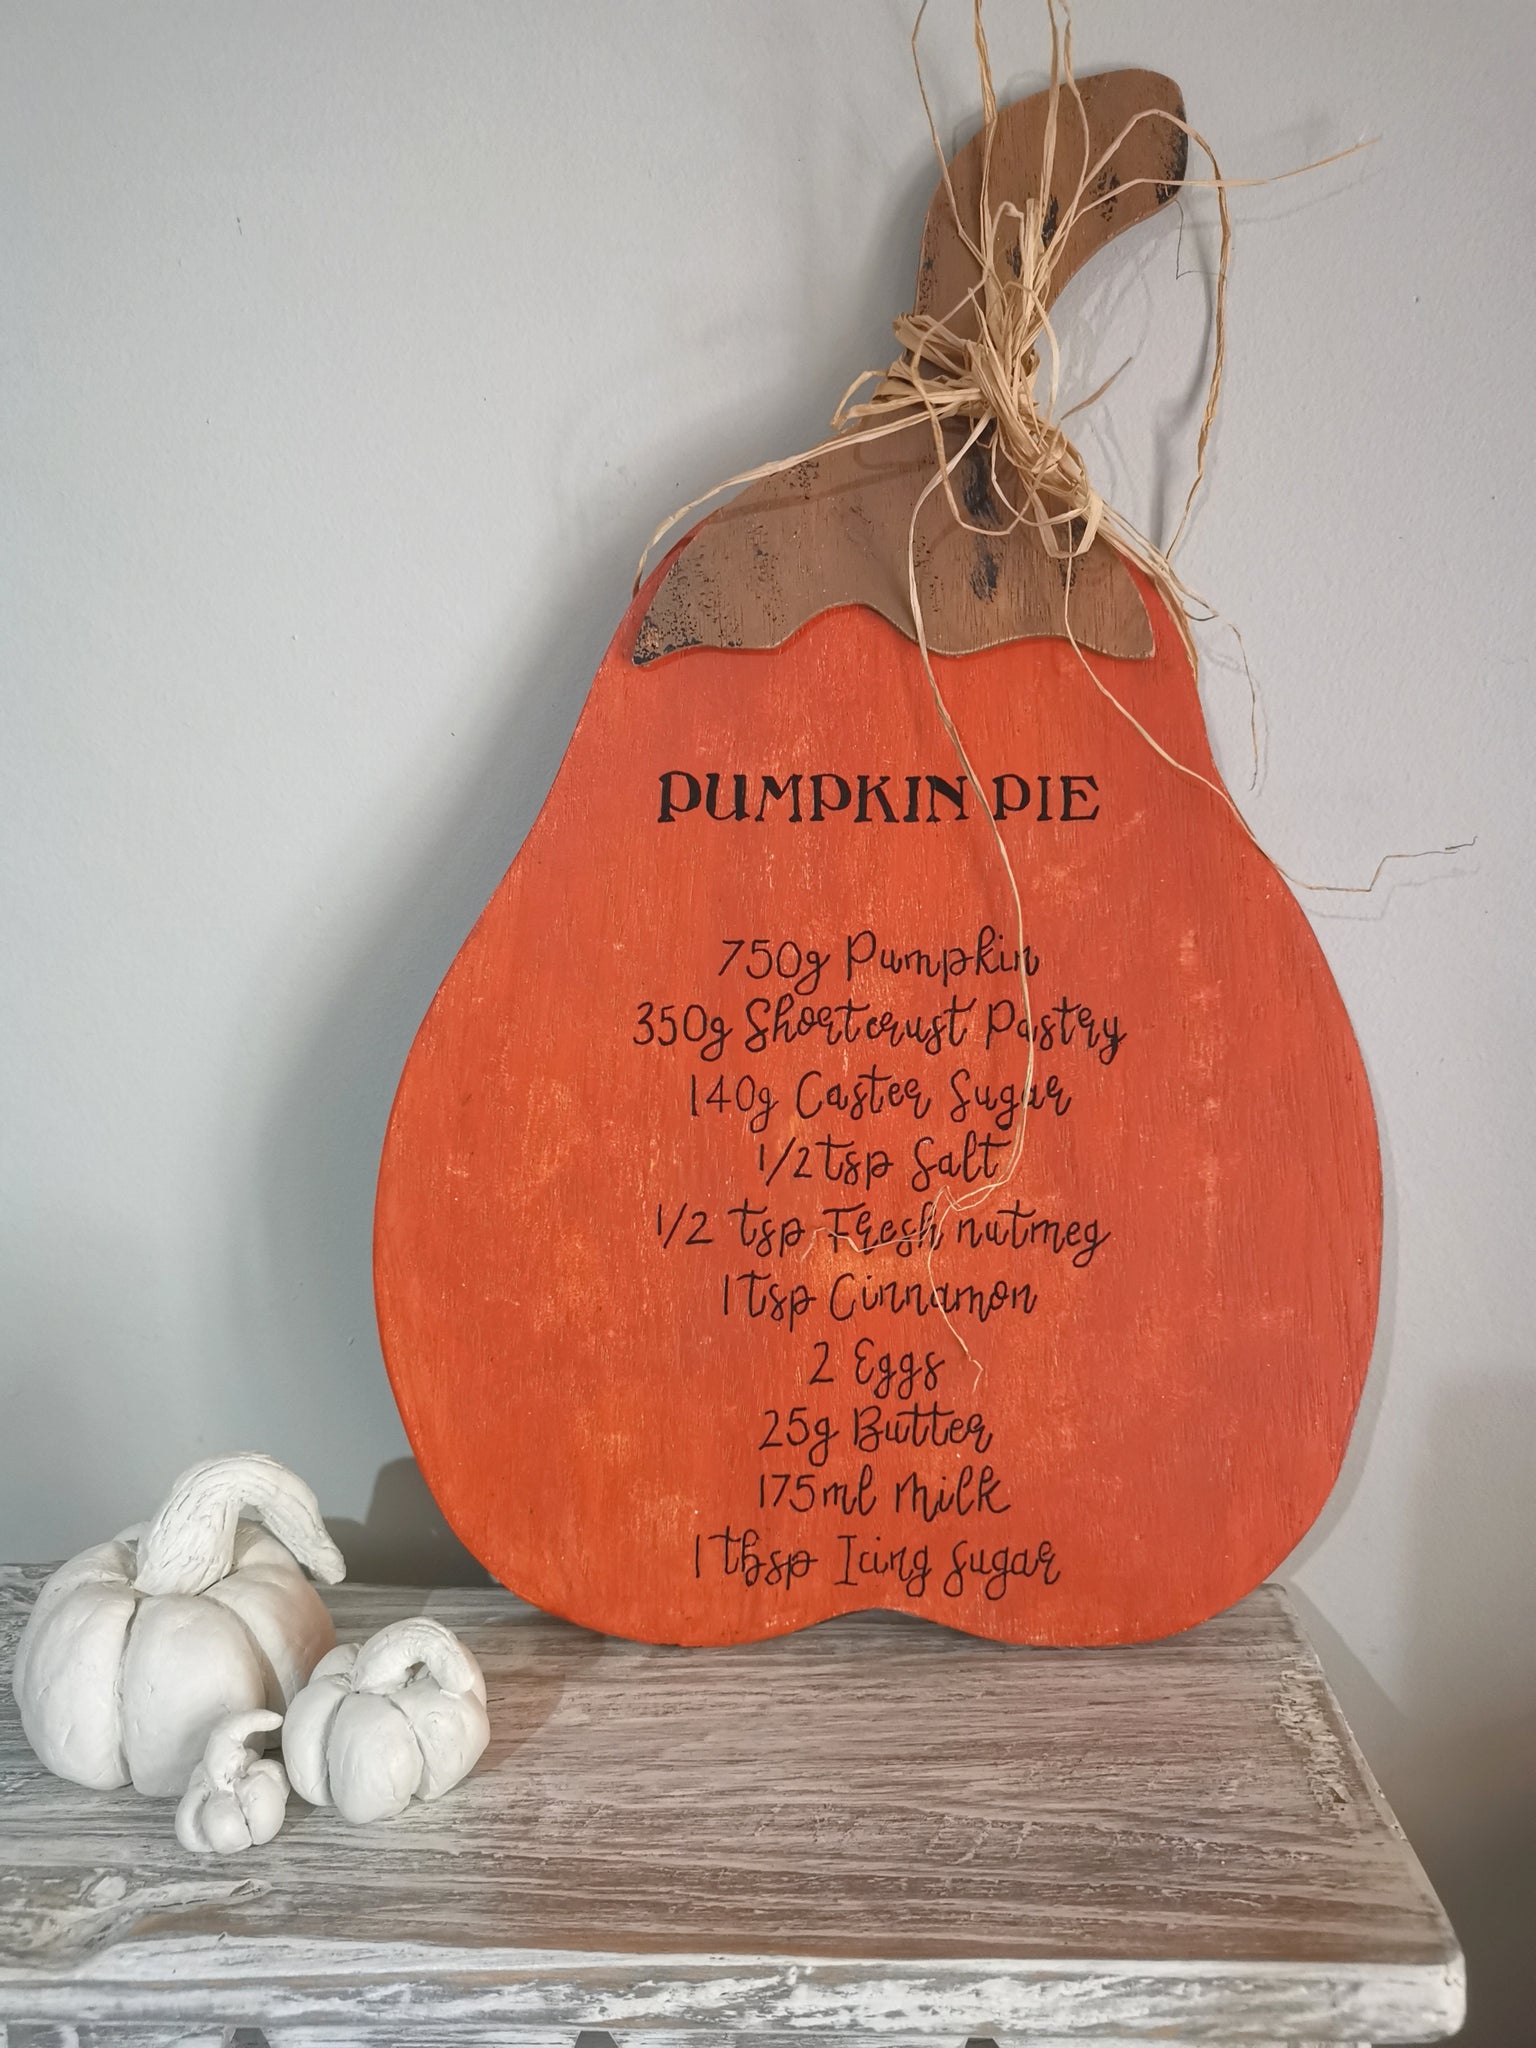 PUMPKIN PIE
750g Pumpkin
350g Shortcrust Pastry
140g Caster Sugar
1/2 tsp Salt
1/2 tsp Fresh nutmeg
1 tsp Cinnamon
2 Eggs
25g Butter
175ml Milk
1 tbsp Icing Sugar